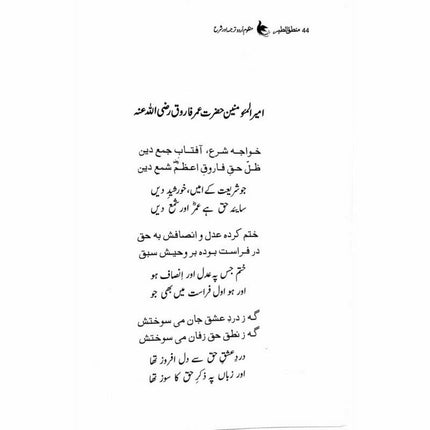 44 منطق الطیر منظوم اُردو ترجمہ اور شرح
امیر المؤمنین حضرت عمر فاروق رضی اللہ عنہ
خواجہ شرع، آفتابِ جمع دین
ظلّ حق فاروقِ اعظمؓ شمع دین
جو شریعت کے امیں، خورشیدِ دیں
سایۂ حق ہے عمرؓ اور شمعِ دیں
ختم کردہ عدل و انصافش بہ حق
در فراست بودہ بر وحیش سبق
ختم جس پہ عدل اور انصاف ہو
اور ہو اول فراست میں بھی جو
گہ ز دردِ عشق جان می سوختش
گہ ز نطق حق زفان می سوختش
دردِ عشقِ حق سے دل افروز تھا
اور زباں پہ ذکرِ حق کا سوز تھا